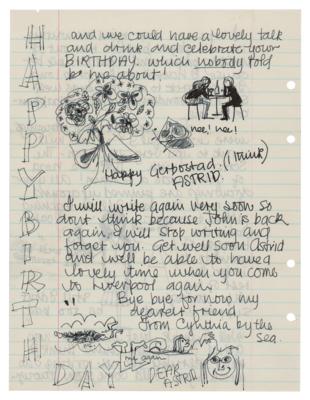 HAPPY BIRTHDAY
and we could have a lovely talk
and drink and celebrate your
BIRTHDAY. which nobody told
me about!
nee! nee!
Happy Gerbostad. (I think)
ASTRID.
I will write again very soon so
dont think because John is back
again I will stop writing and
forget you. Get well soon Astrid
and well be able to have a
lovely time when you come
to Liverpool again.
Bye bye for now my
dearest friend
from Cynthia by the
sea.
me again
DEAR
ASTRID